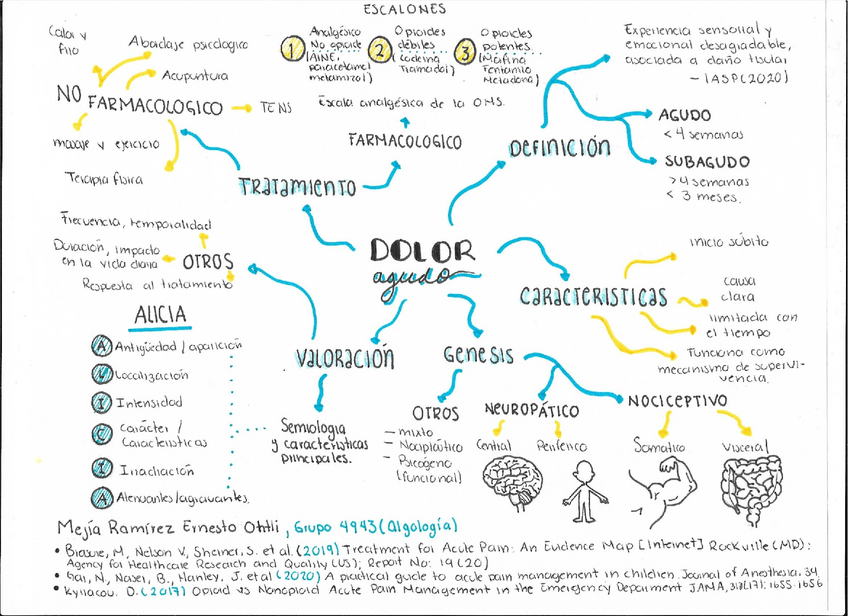 ESCALONES
1
Analgésico
No opioide
(AINE,
paracetamol
metamizol)
2
Opioides
débiles
(codeína
Tramadol)
3
Opioides
potentes.
(Morfina
Fentanilo
Metadona)
Calor y
frío
Abordaje psicologico
Acupuntura
NO FARMACOLOGICO
TENS
masaje y ejercicio
Terapia física
Escala analgésica de la OMS.
FARMACOLOGICO
TRATAMIENTO
DEFINICIÓN
Experiencia sensorial y
emocional desagradable,
asociada a daño tisular
- IASP(2020)
AGUDO
< 4 semanas
SUBAGUDO
>4 semanas
< 3 meses.
DOLOR
agudo
Frecuencia, temporalidad
Duración, impacto
en la vida diaria
OTROS
Respuesta al tratamiento
CARACTERISTICAS
inicio súbito
causa
clara
limitada con
el tiempo
Funciona como
mecanismo de supervi-
vencia.
ALICIA
A Antigüedad / aparición
Localización
I Intensidad
C Carácter /
Características
I Irradiación
A Atenuantes/agravantes.
VALORACIÓN
Semiología
y características
principales.
GENESIS
OTROS
- mixto
- Nociplático
- Psicógeno
(funcional)
NEUROPÁTICO
Central
Periferico
NOCICEPTIVO
Somatico
Visceral
Mejía Ramírez Ernesto Othli, Grupo 4943(Algología)
• M, Nelson V, S. et al. (2019) Treatment for Acute Pain: An Evidence Map [Internet] Rockville (MD):
Agency for Healthcare Research and Quality (US); Report No: 19(20)
• Gai, N, Naser, B., Hanley, J. et al (2020) A practical guide to acute pain management in children. Journal of Anesthesia. 34
• D. (2017) Opioid vs Nonopioid Acute Pain Management in the Emergency Department JAMA, 318(17): 1655-1656